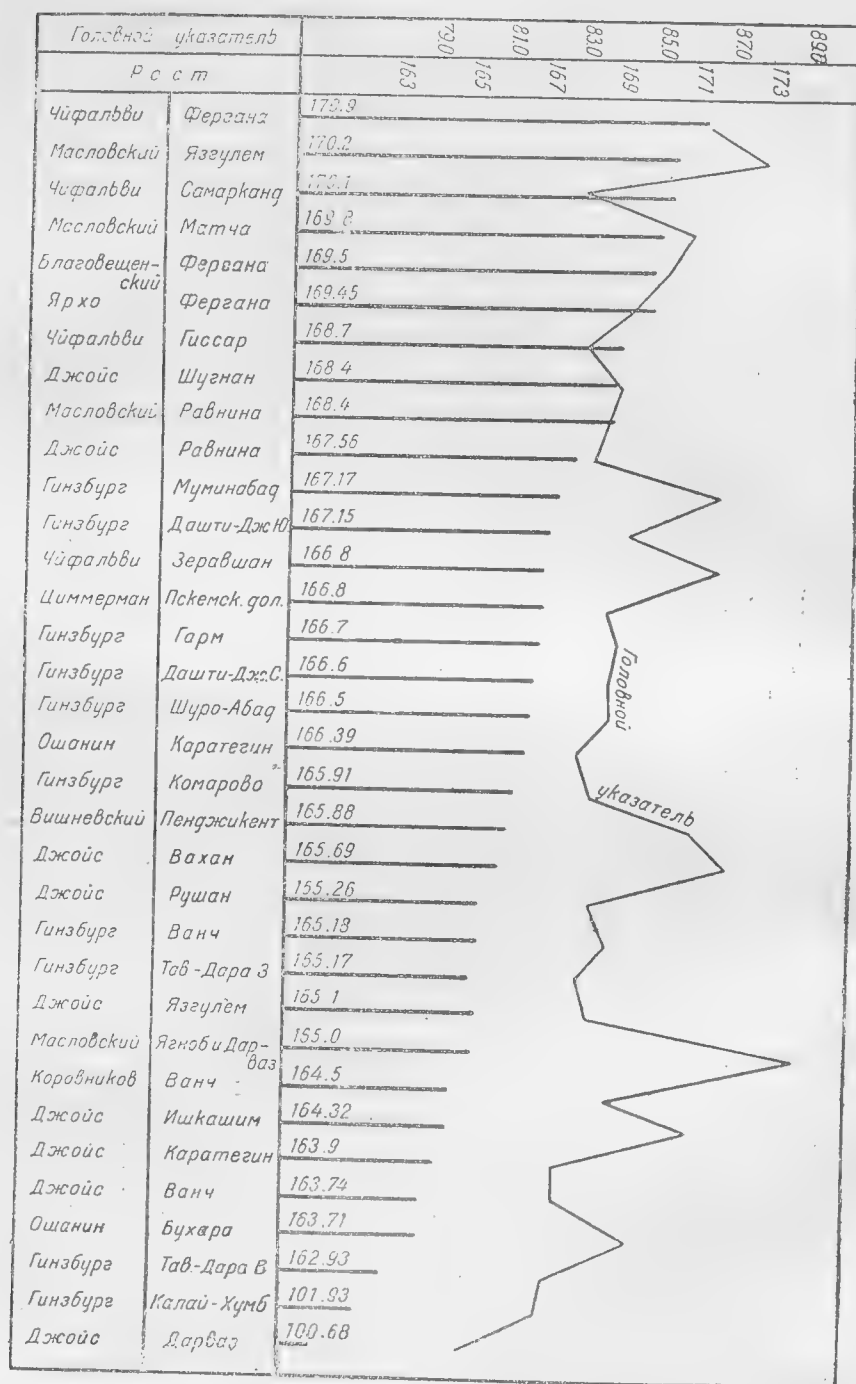 Головной указатель
790 810 830 850 870 890
Рост
163 165 167 169 171 173
Чйфальви Фергана 170.9
Масловский Язгулем 170.2
Чйфальви Самарканд 170.1
Масловский Матча 169.8
Благовещен-
ский Фергана 169.5
Ярхо Фергана 169.45
Чйфальви Гиссар 168.7
Джойс Шугнан 168.4
Масловский Равнина 168.4
Джойс Равнина 167.56
Гинзбург Муминабад 167.17
Гинзбург Дашти-Дж Ю 167.15
Чйфальви Зеравшан 166.8
Циммерман Пскемск. дол. 166.8
Гинзбург Гарм 166.7
Гинзбург Дашти-Дж.С. 166.6
Гинзбург Шуро-Абад 166.5
Ошанин Каратегин 166.39
Гинзбург Комарово 165.91
Вишневский Пенджикент 165.88
Джойс Вахан 165.69
Джойс Рушан 165.26
Гинзбург Ванч 165.18
Гинзбург Тав-Дара З 165.17
Джойс Язгулем 165.1
Масловский Ягноб и Дар-
ваз 165.0
Коровников Ванч 164.5
Джойс Ишкашим 164.32
Джойс Каратегин 163.9
Джойс Ванч 163.74
Ошанин Бухара 163.71
Гинзбург Тав-Дара В 162.93
Гинзбург Калай-Хумб 101.93
Джойс Дарваз 100.68
Головной
указатель